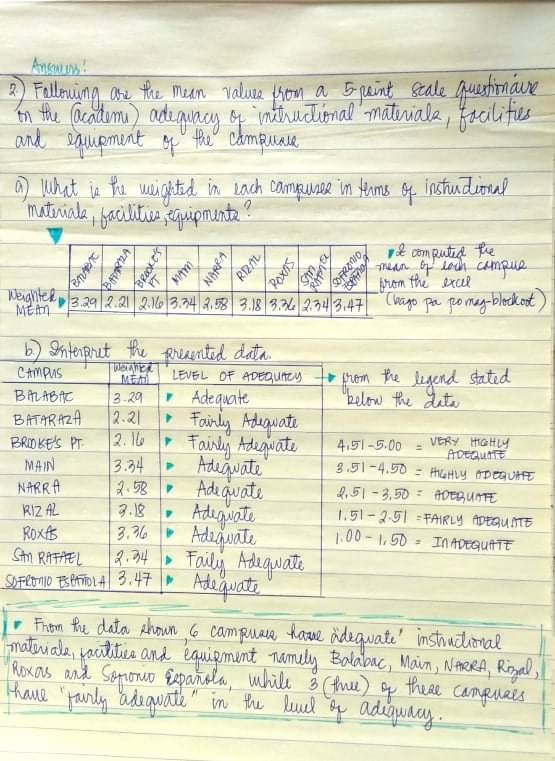 Answers!
2.) Following are the mean values from a 5 point scale questionaire
on the (academi) adequacy of instructional materials, facilities
and equipment of the campuses
a) What is the weighted in each campuses in terms of instructional
materials, facilities, equipments?
BALABAC BATARAZA BROOKE'S PT MAIN NARRA RIZAL ROXAS SAN RAFAEL SOFRONIO ESPAÑOLA
Weighted MEAN 3.29 2.21 2.16 3.34 2.58 3.18 3.36 2.34 3.47
I computed the
mean of each campus
from the excel
(bago pa po mag-blockout)
b.) Interpret the presented data.
CAMPUS Weighted MEAN LEVEL OF ADEQUACY
BALABAC 3.29 Adequate
BATARAZA 2.21 Fairly Adequate
BROOKE'S PT 2.16 Fairly Adequate
MAIN 3.34 Adequate
NARRA 2.58 Adequate
RIZAL 3.18 Adequate
ROXAS 3.36 Adequate
SAN RAFAEL 2.34 Faily Adequate
SOFRONIO ESPAÑOLA 3.47 Adequate
from the legend stated
below the data
4.51-5.00 = VERY HIGHLY
ADEQUATE
3.51-4.50 = HIGHLY ADEQUATE
2.51-3.50 = ADEQUATE
1.51-2.51 = FAIRLY ADEQUATE
1.00-1.50 = INADEQUATE
From the data shown 6 campuses have "adequate" instructional
materials, facilities and equipment namely Balabac, Main, NARRA, Rizal,
Roxas and Sofronio Española, while 3 (three) of these campuses
have "fairly adequate" in the level of adequacy.